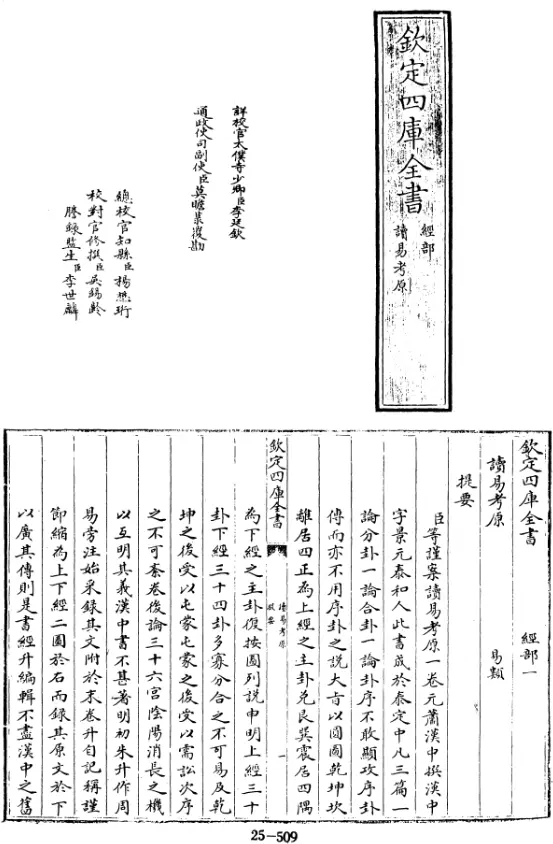 欽定四庫全書
經部
讀易考原
詳校官太僕寺少卿臣李廷欽
通政使司副使臣莫瞻菉覆勘
總校官知縣臣楊懋珩
校對官修撰臣吳錫齡
謄錄監生臣李世麟
欽定四庫全書
經部一
讀易考原
易類
提要
臣等謹案讀易考原一卷元蕭漢中撰漢中
字景元泰和人此書成於泰定中凡三篇一
論分卦一論合卦一論卦序不敢顯攻序卦
傳而亦不用序卦之說大旨以圓圖乾坤坎
離居四正為上經之主卦兌艮巽震居四隅
欽定四庫全書
讀易考原
提要
一
為下經之主卦復按圖列說申明上經三十
卦下經三十四卦多寡分合之不可易及乾
坤之後受以屯蒙屯蒙之後受以需訟次序
之不可紊卷後論三十六宮陰陽消長之機
以互明其義漢中書不甚著明初朱升作周
易旁注始采錄其文附於末卷升自記稱謹
節縮為上下經二圖於右而錄其原文於下
以廣其傳則是書經升編輯不盡漢中之舊
25-509